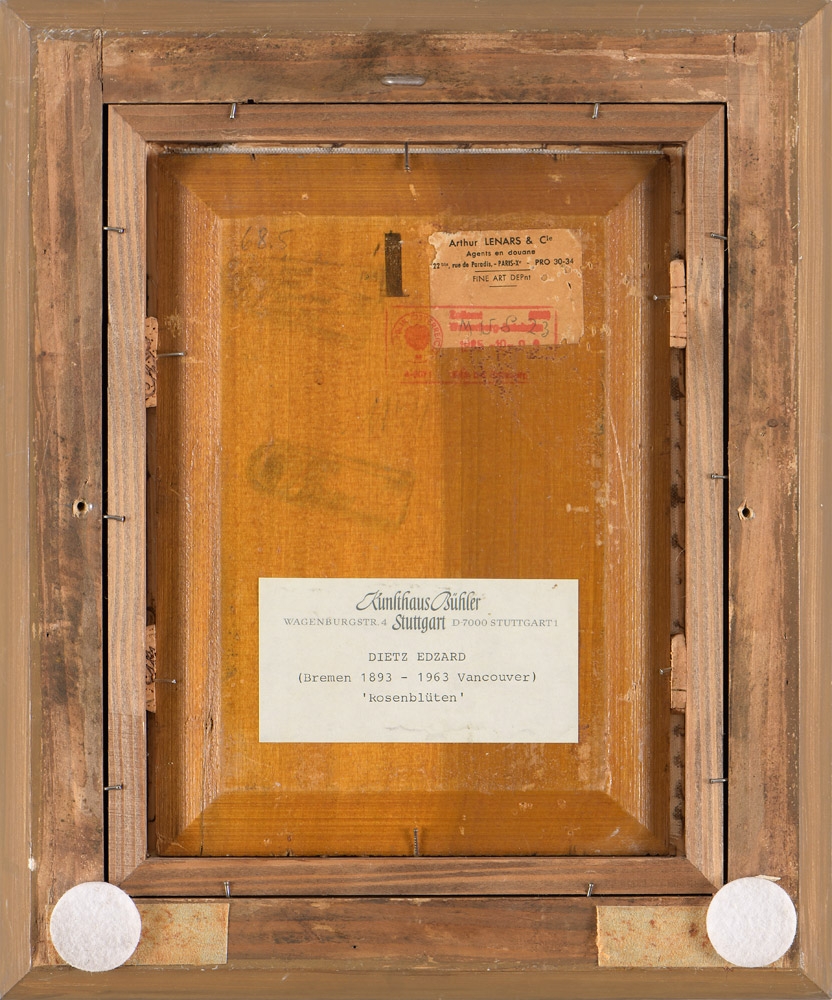 68.5
Arthur LENARS & Cie
Agents en douane
22 bis, rue de Paradis, - PARIS-Xe - PRO 30-34
FINE ART DEPnt
Kunsthaus Bühler
WAGENBURGSTR. 4 Stuttgart D-7000 STUTTGART 1
DIETZ EDZARD
(Bremen 1893 - 1963 Vancouver)
'kosenblüten'